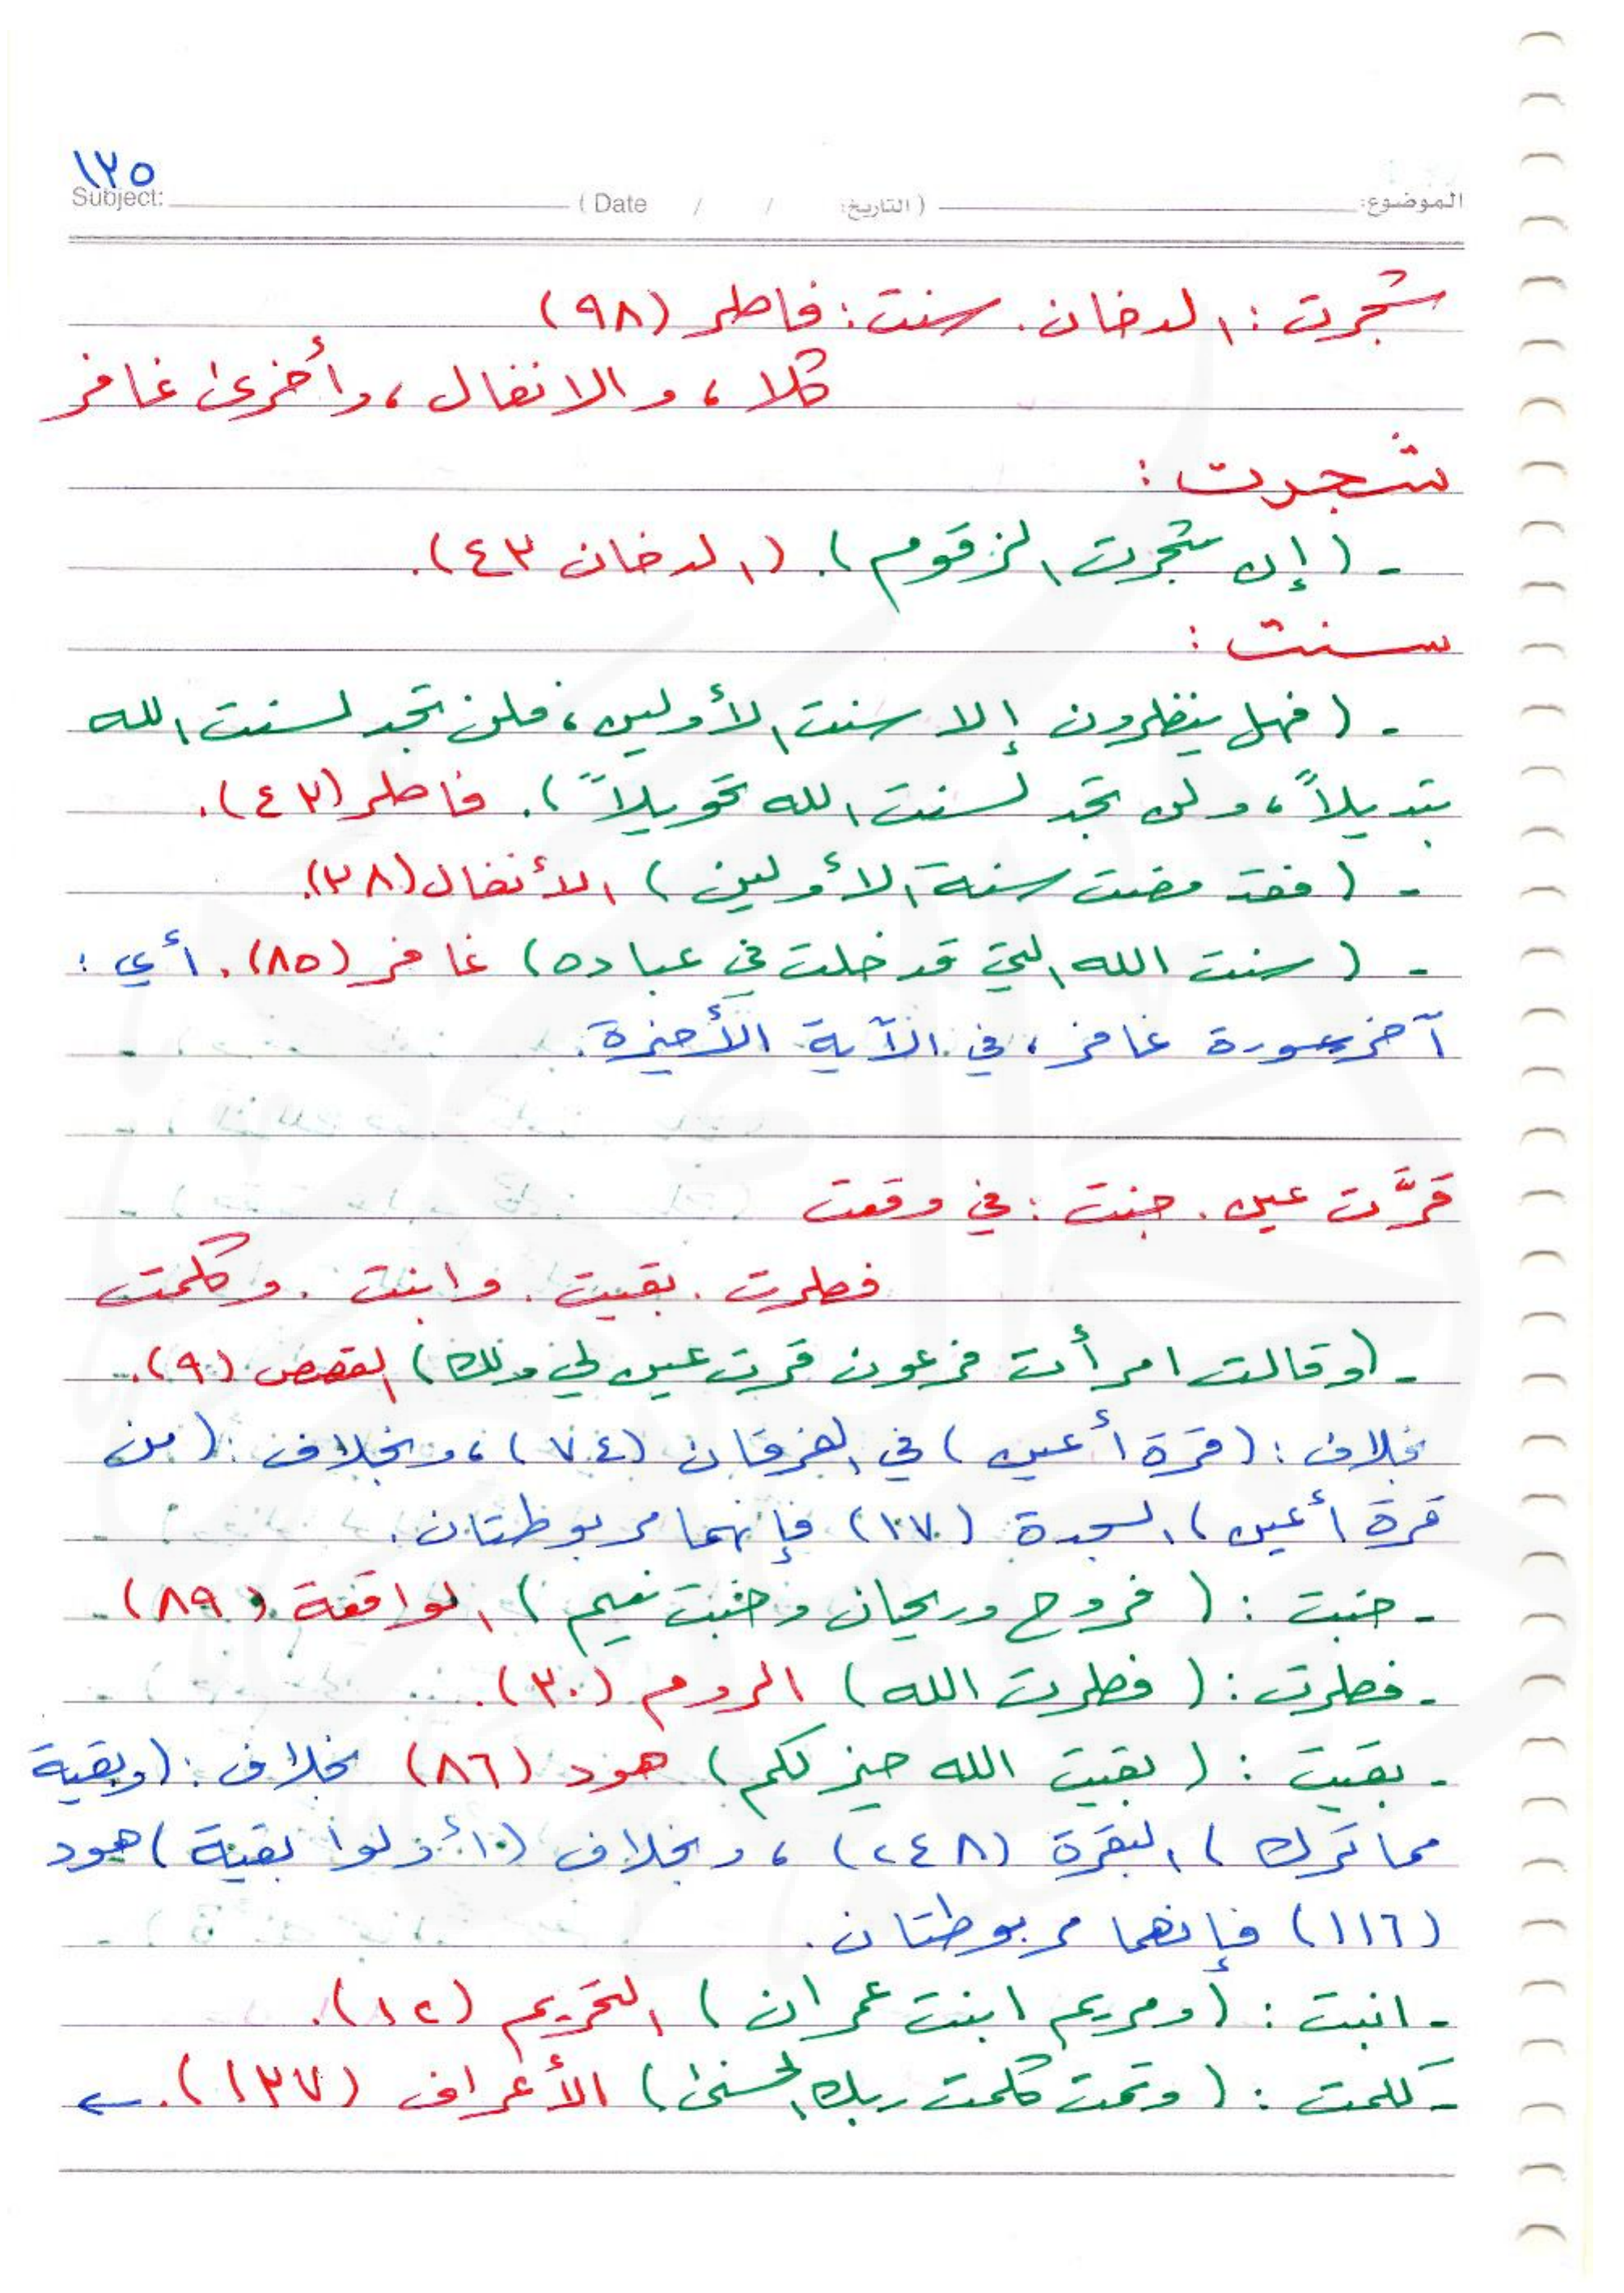 ١٢٥
الموضوع: ( التاريخ: / / Date ) Subject:
شجرت : الدخان . سنت : فاطر (٩٨)
كلا ، والانفال ، وأخرى غافر
شجرت :
- ( إن شجرت الزقوم ) . ( الدخان ٤٣ ) .
سنت :
- ( فهل ينظرون إلا سنت الأولين ، فلن تجد لسنت الله
تبديلاً ، ولن تجد لسنت الله تحويلاً ) . فاطر (٤٣) .
- ( فقد مضت سنة الأولين ) الأنفال (٣٨) .
- ( سنت الله التي قد خلت في عباده ) غافر (٨٥) . أي :
آخر سورة غافر ، في الآية الأخيرة .
قرَّت عين . جنت : في وقعت
فطرت . بقيت . وابنت . وكلمت
- ( وقالت امرأت فرعون قرت عين لي ولك ) القصص (٩) .
بخلاف : ( قرة أعين ) في الفرقان (٧٤) ، وبخلاف : ( من
قرة أعين ) السجدة (١٧) فإنهما مربوطتان .
- جنت : ( فروح وريحان وجنت نعيم ) الواقعة (٨٩) .
- فطرت : ( فطرت الله ) الروم (٣٠) .
- بقيت : ( بقيت الله خير لكم ) هود (٨٦) بخلاف : ( وبقية
مما ترك ) البقرة (٢٤٨) ، وبخلاف ( أولوا بقية ) هود
(١١٦) فإنهما مربوطتان .
- ابنت : ( ومريم ابنت عمران ) التحريم (١٢) .
- كلمت : ( وتمت كلمت ربك الحسنى ) الأعراف (١٣٧) . ←